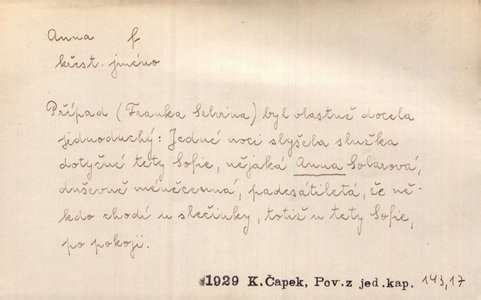 Anna f
křest. jméno
Případ (Franka Selvina) byl vlastně docela
jednoduchý: Jedné noci slyšela služka
dotyčné tety Sofie, nějaká Anna Solarová,
duševně méněcenná, padesátiletá, že ně-
kdo chodí u slečinky, totiž u tety Sofie,
po pokoji.
1929 K.Čapek, Pov.z jed.kap. 143,17